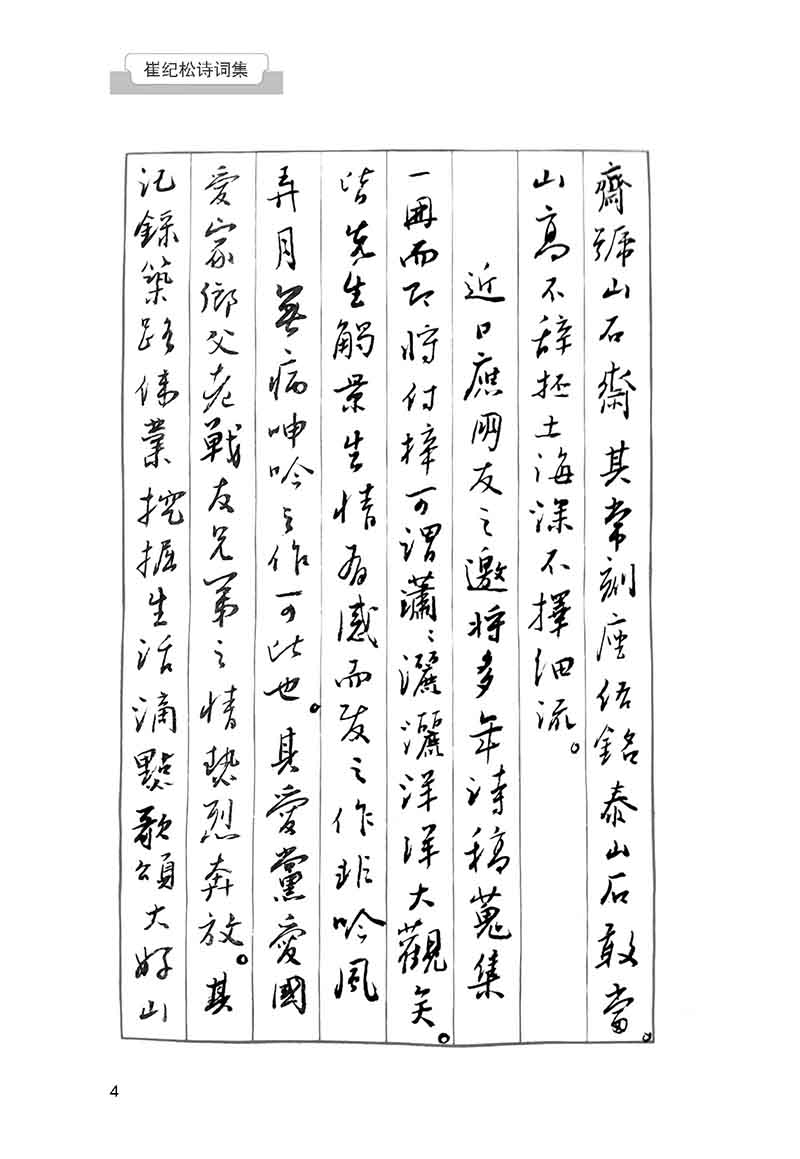 崔纪松诗词集
齋號山石齋其常刻座侣銘泰山石敢當。
山高不辞抔土海深不擇细流。
近日應网友之邀将多年诗稿蒐集
一册而即将付梓可谓蕭ミ灑灑洋洋大觀矣。
皆先生觸景生情有感而发之作非吟風
弄月無病呻吟之作可比也。其愛黨愛國
爱家鄉父老戰友兄弟之情熱烈奔放。其
记錄築路偉業挖掘生活滴點歌頌大好山
4